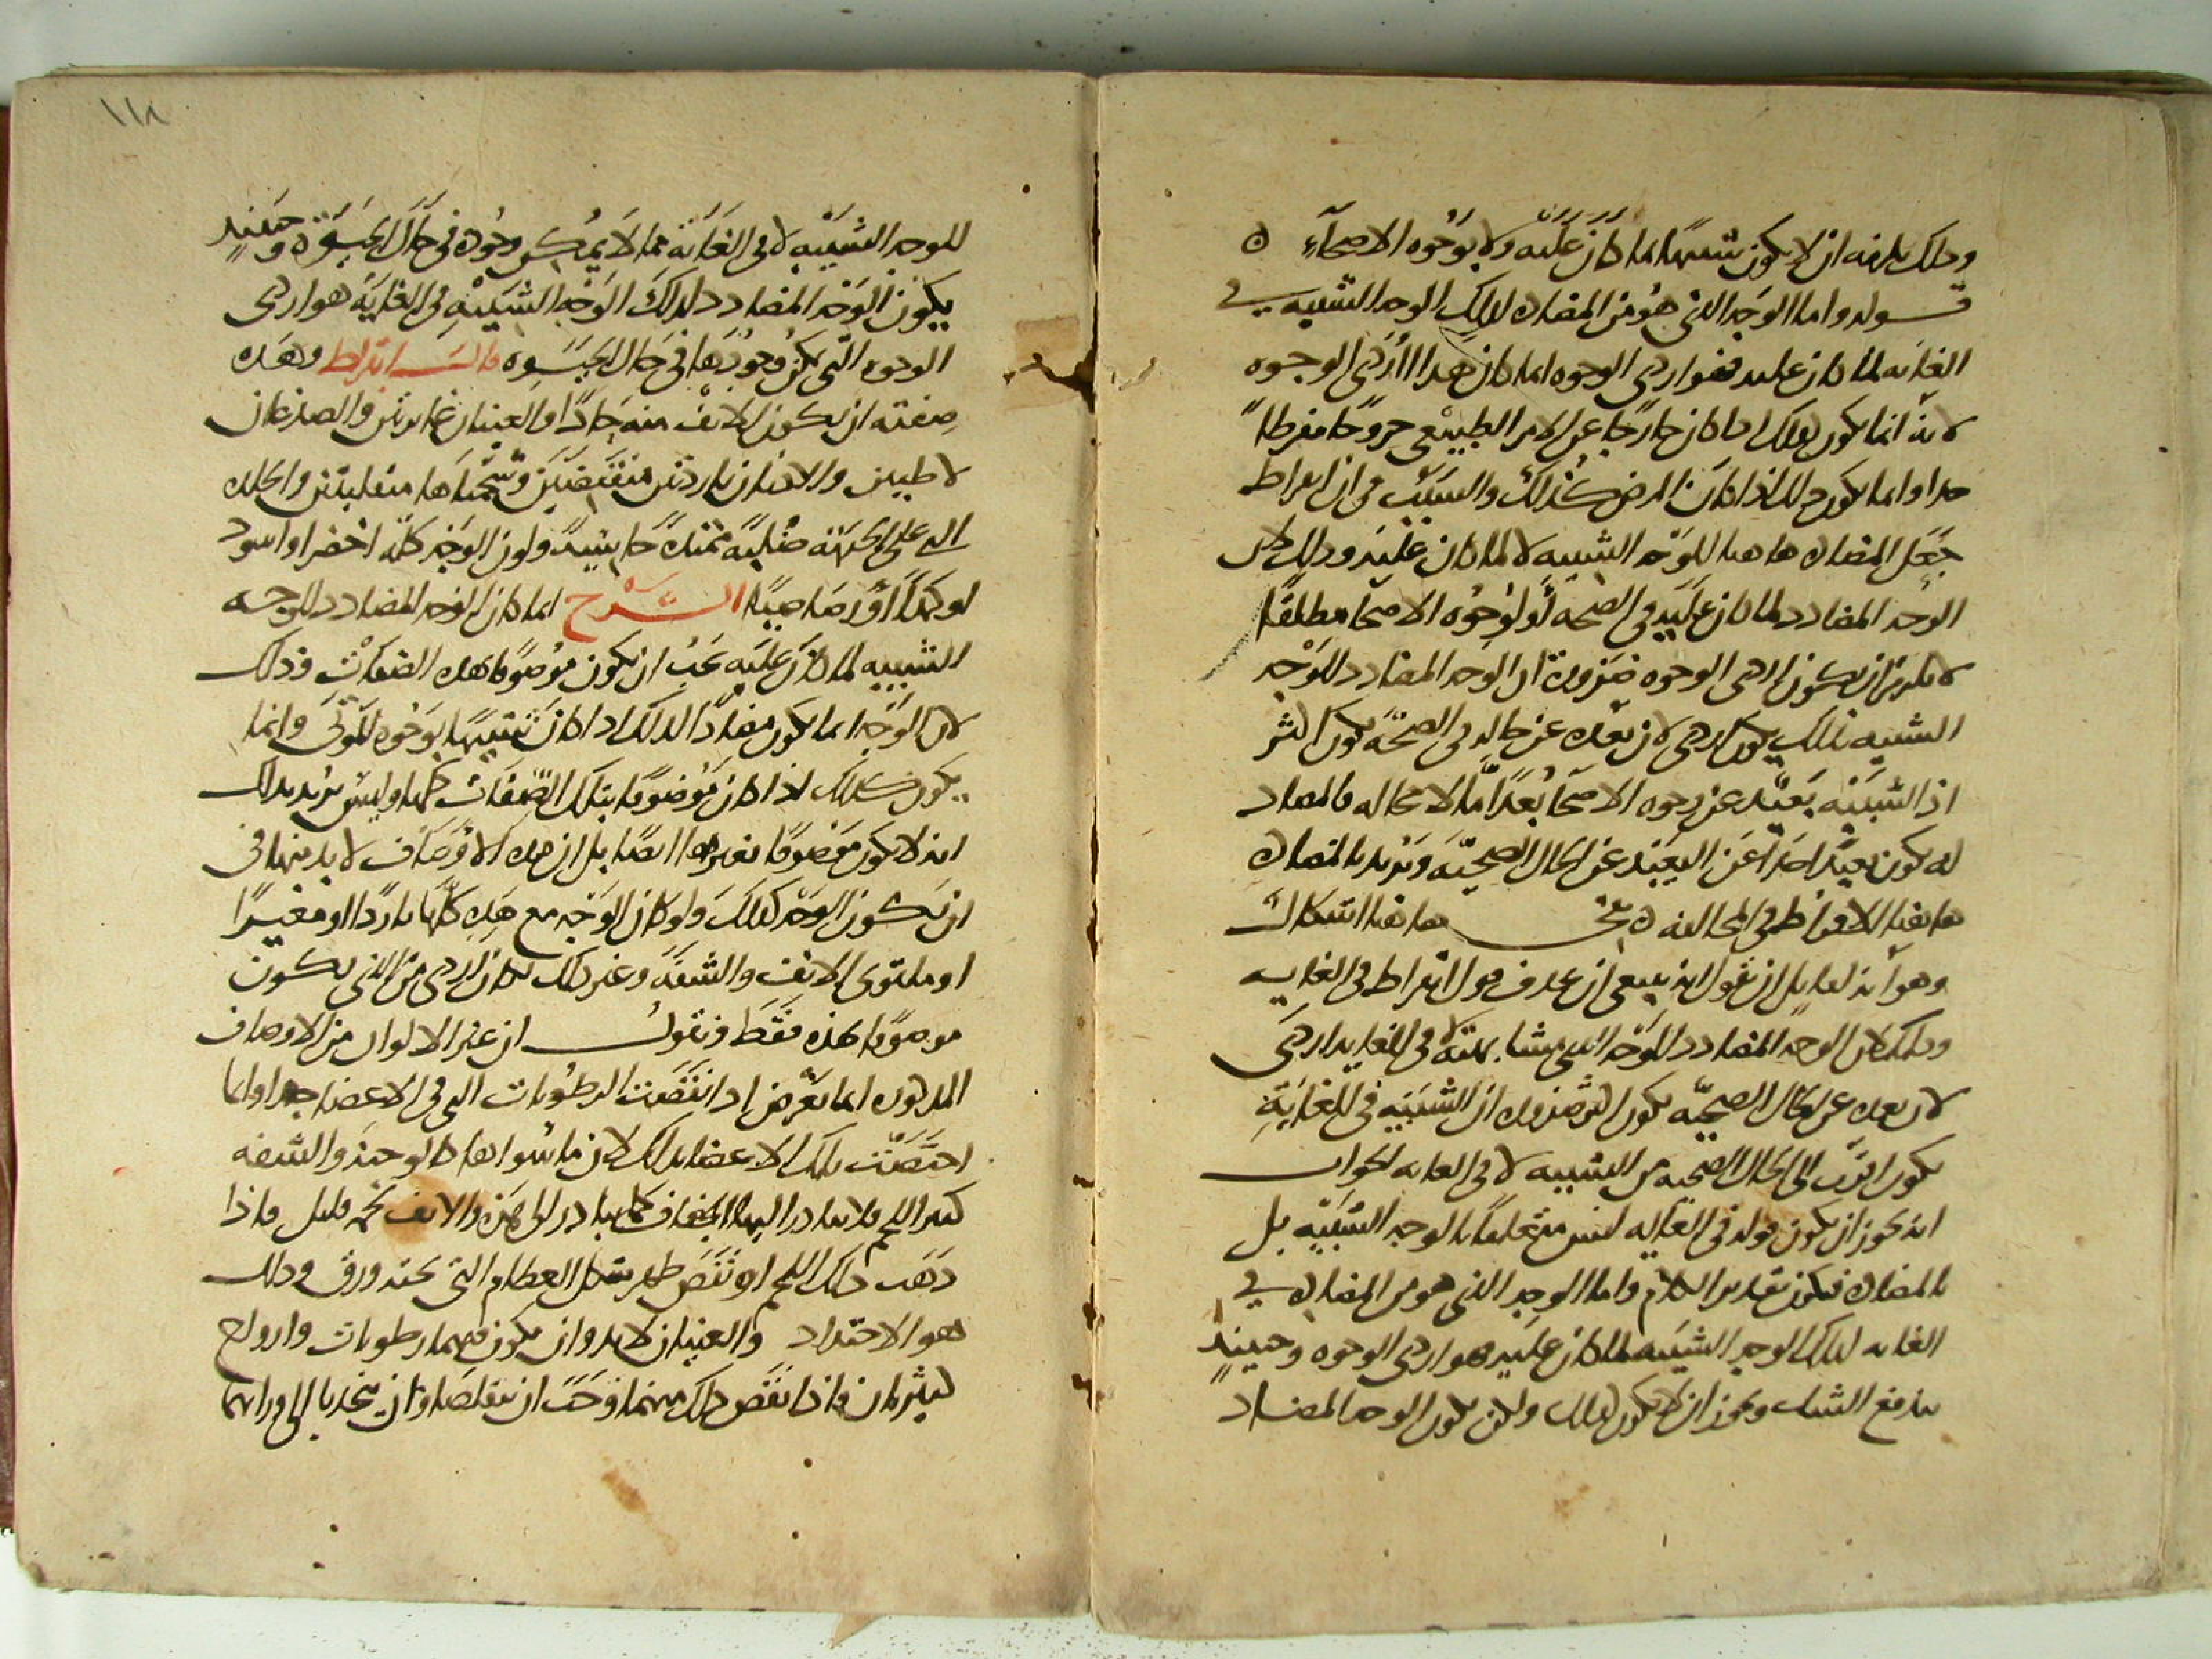 وذلك يلزمه ان لا يكون شبيها بما كان عليه ولا بوجوه الاصحاء ه
قوله واما الوجه الذي هو من المضادة لذلك الوجه الشبيه في
الغاية لما كان عليه فهو اردى الوجوه انما كان هذا اردى الوجوه
لانه انما يكون كذلك اذا كان خارجا عن الامر الطبيعي خروجا مفرطا
جدا وانما يكون ذلك اذا كان المرض كذلك والسبب في ان ابقراط
جعل المضادة هاهنا للوجه الشبيه لا لما كان عليه وذلك لان
الوجه المضادد لما كان عليه في الصحة او لوجوه الاصحا مطلقا
لا يلزم ان يكون اردى الوجوه ضرورة ان الوجه المضادد للوجه
الشبيه بذلك يكون اردى لان بعده عن حاله في الصحة يكون اكثر
اذ الشبيه بعيد عن وجوه الاصحا بعدا ما لا محالة فالمضاد
له يكون بعيدا جدا عن البعيد عن الحال الصحية ونريد بالمضادة
هاهنا الافراط في المخالفة ه بحث هاهنا اشكال
وهو انه لقايل ان يقول انه ينبغي ان يحذف قول ابقراط في الغاية
وذلك لان الوجه المضادد للوجه الذي مشابهته لا في الغاية اردى
لان بعده عن الحال الصحية يكون اكثر ضرورة ان الشبيه في الغاية
يكون اقرب الى الحال الصحية من الشبيه لا في الغاية الجواب
انه يجوز ان يكون قوله في الغاية ليس متعلقا بالوجه الشبيه بل
بالمضادة فيكون تقدير الكلام واما الوجه الذي هو من المضادة في
الغاية لذلك الوجه الشبيه لما كان عليه هو اردى الوجوه وحينئذ
يندفع الشك ويجوز ان لا يكون كذلك ولكن يكون الوجه المضاد
١١٨
للوجه الشبيه لا في الغاية مما لا يمكن وجوده في حال الحيوة وحينئذ
يكون الوجه المضادد لذلك الوجه الشبيه في الغاية هو اردى
الوجوه التي يمكن وجودها في حال الحيوة قال ابقراط وهذه
صفته ان يكون الانف منه حادا والعينان غايرتين والصدغان
لاطيين والاذنان باردتين منقبضتين وشحمتاهما منقلبتين والجلدة
التي على الجبهة صلبة ممتدة يابسة ولون الوجه كله اخضر او اسود
او كمدا او رصاصيا الشرح انما كان الوجه المضادد للوجه
الشبيه لما كان عليه يجب ان يكون موصوفا بهذه الصفات وذلك
لان الوجه انما يكون مضادا لذلك اذا كان شبيها بوجوه الموتى وانما
يكون كذلك اذا كان موصوفا بتلك الصفات كلها وليس يريد بذلك
انه لا يكون موصوفا بغيرها ايضا بل ان هذه الاوصاف لا بد منها في
ان يكون الوجه كذلك ولو كان الوجه مع هذه كلها باردا او مغبرا
او ملتوي الانف والشفة وغير ذلك لكان اردى من الذي يكون
موصوفا بهذه فقط ونقول ان غير الالوان من الاوصاف
المذكورة انما تعرض اذا نقصت الرطوبات التي في الاعضا جدا وانما
اختصت بتلك الاعضا بذلك لان ما سواها كالوجنة والشفة
كثير اللحم فلا يبادر اليها الجفاف كما يبادر الى هذه والانف لحمه قليل فاذا
ذهب ذلك اللحم او نقص ظهر شكل العظام التي تحته ورق وذلك
هو الاحتداد والعينان لا بد وان يكون فيهما رطوبات وارواح
كثيرتان فاذا نقص ذلك منهما وجب ان يتقلصا وان ينجذبا الى ورائهما